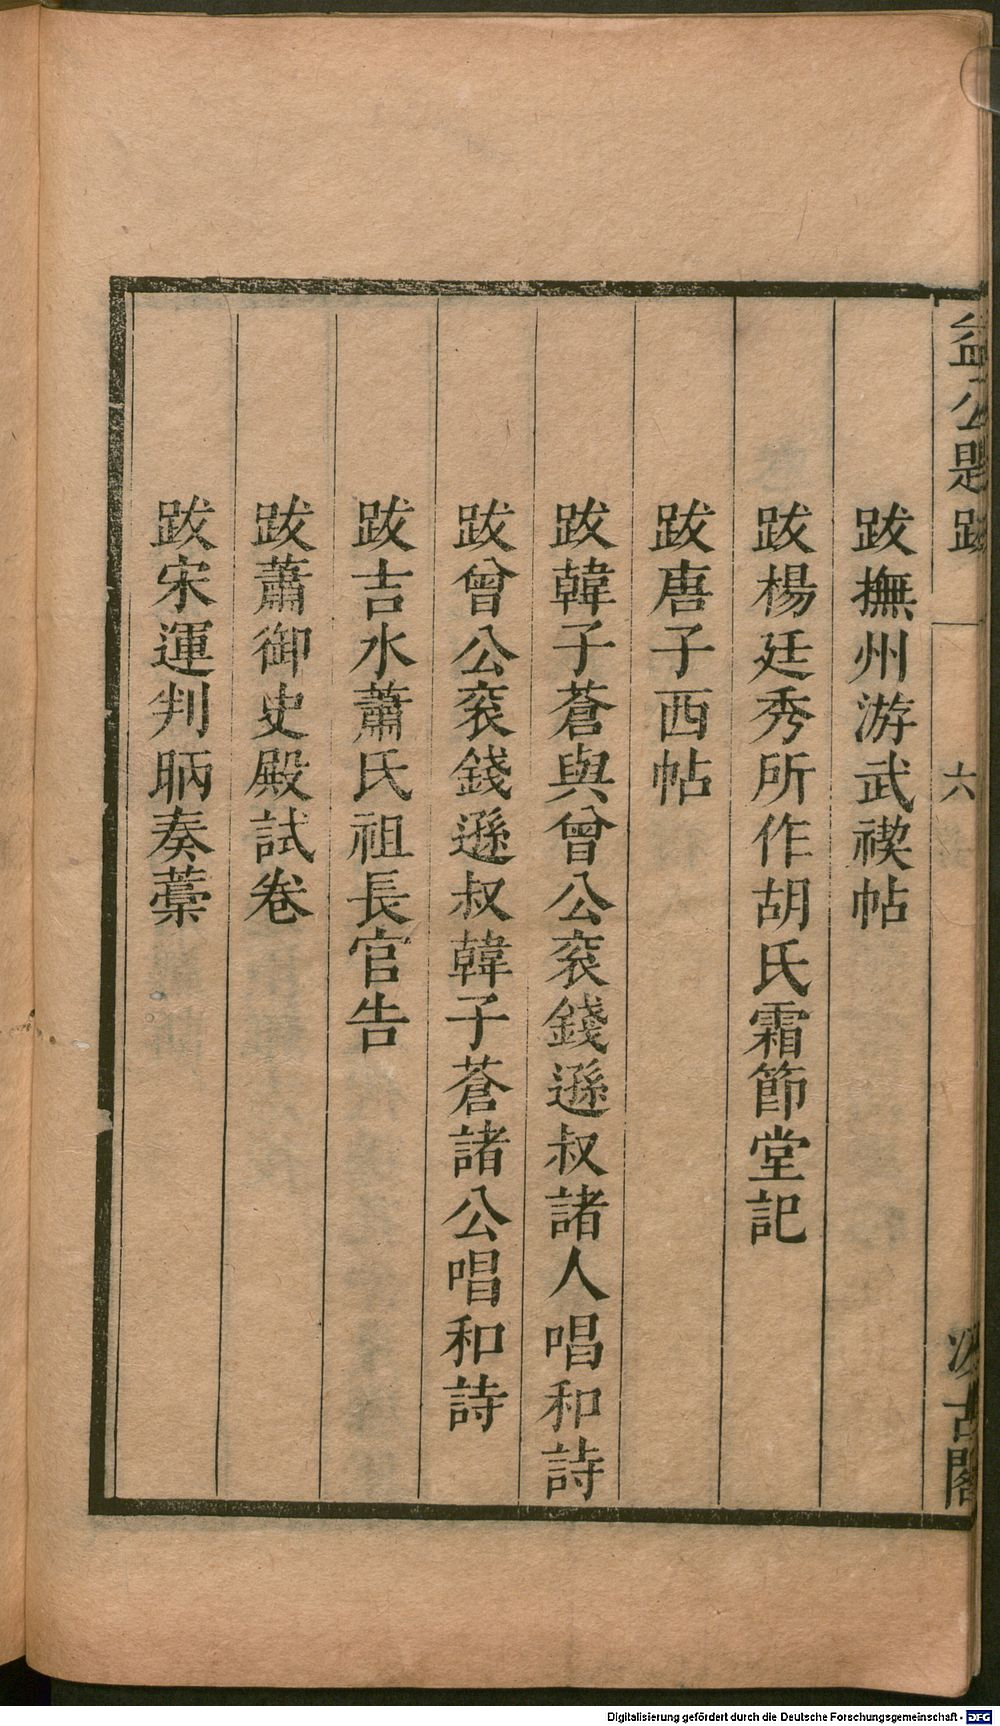 益公題跋
六
汲古閣
跋撫州游武禊帖
跋楊廷秀所作胡氏霜節堂記
跋唐子西帖
跋韓子蒼與曾公衮錢遜叔諸人唱和詩
跋曾公衮錢遜叔韓子蒼諸公唱和詩
跋吉水蕭氏祖長官告
跋蕭御史殿試卷
跋宋運判昞奏藁
Digitalisierung gefördert durch die Deutsche Forschungsgemeinschaft - DFG